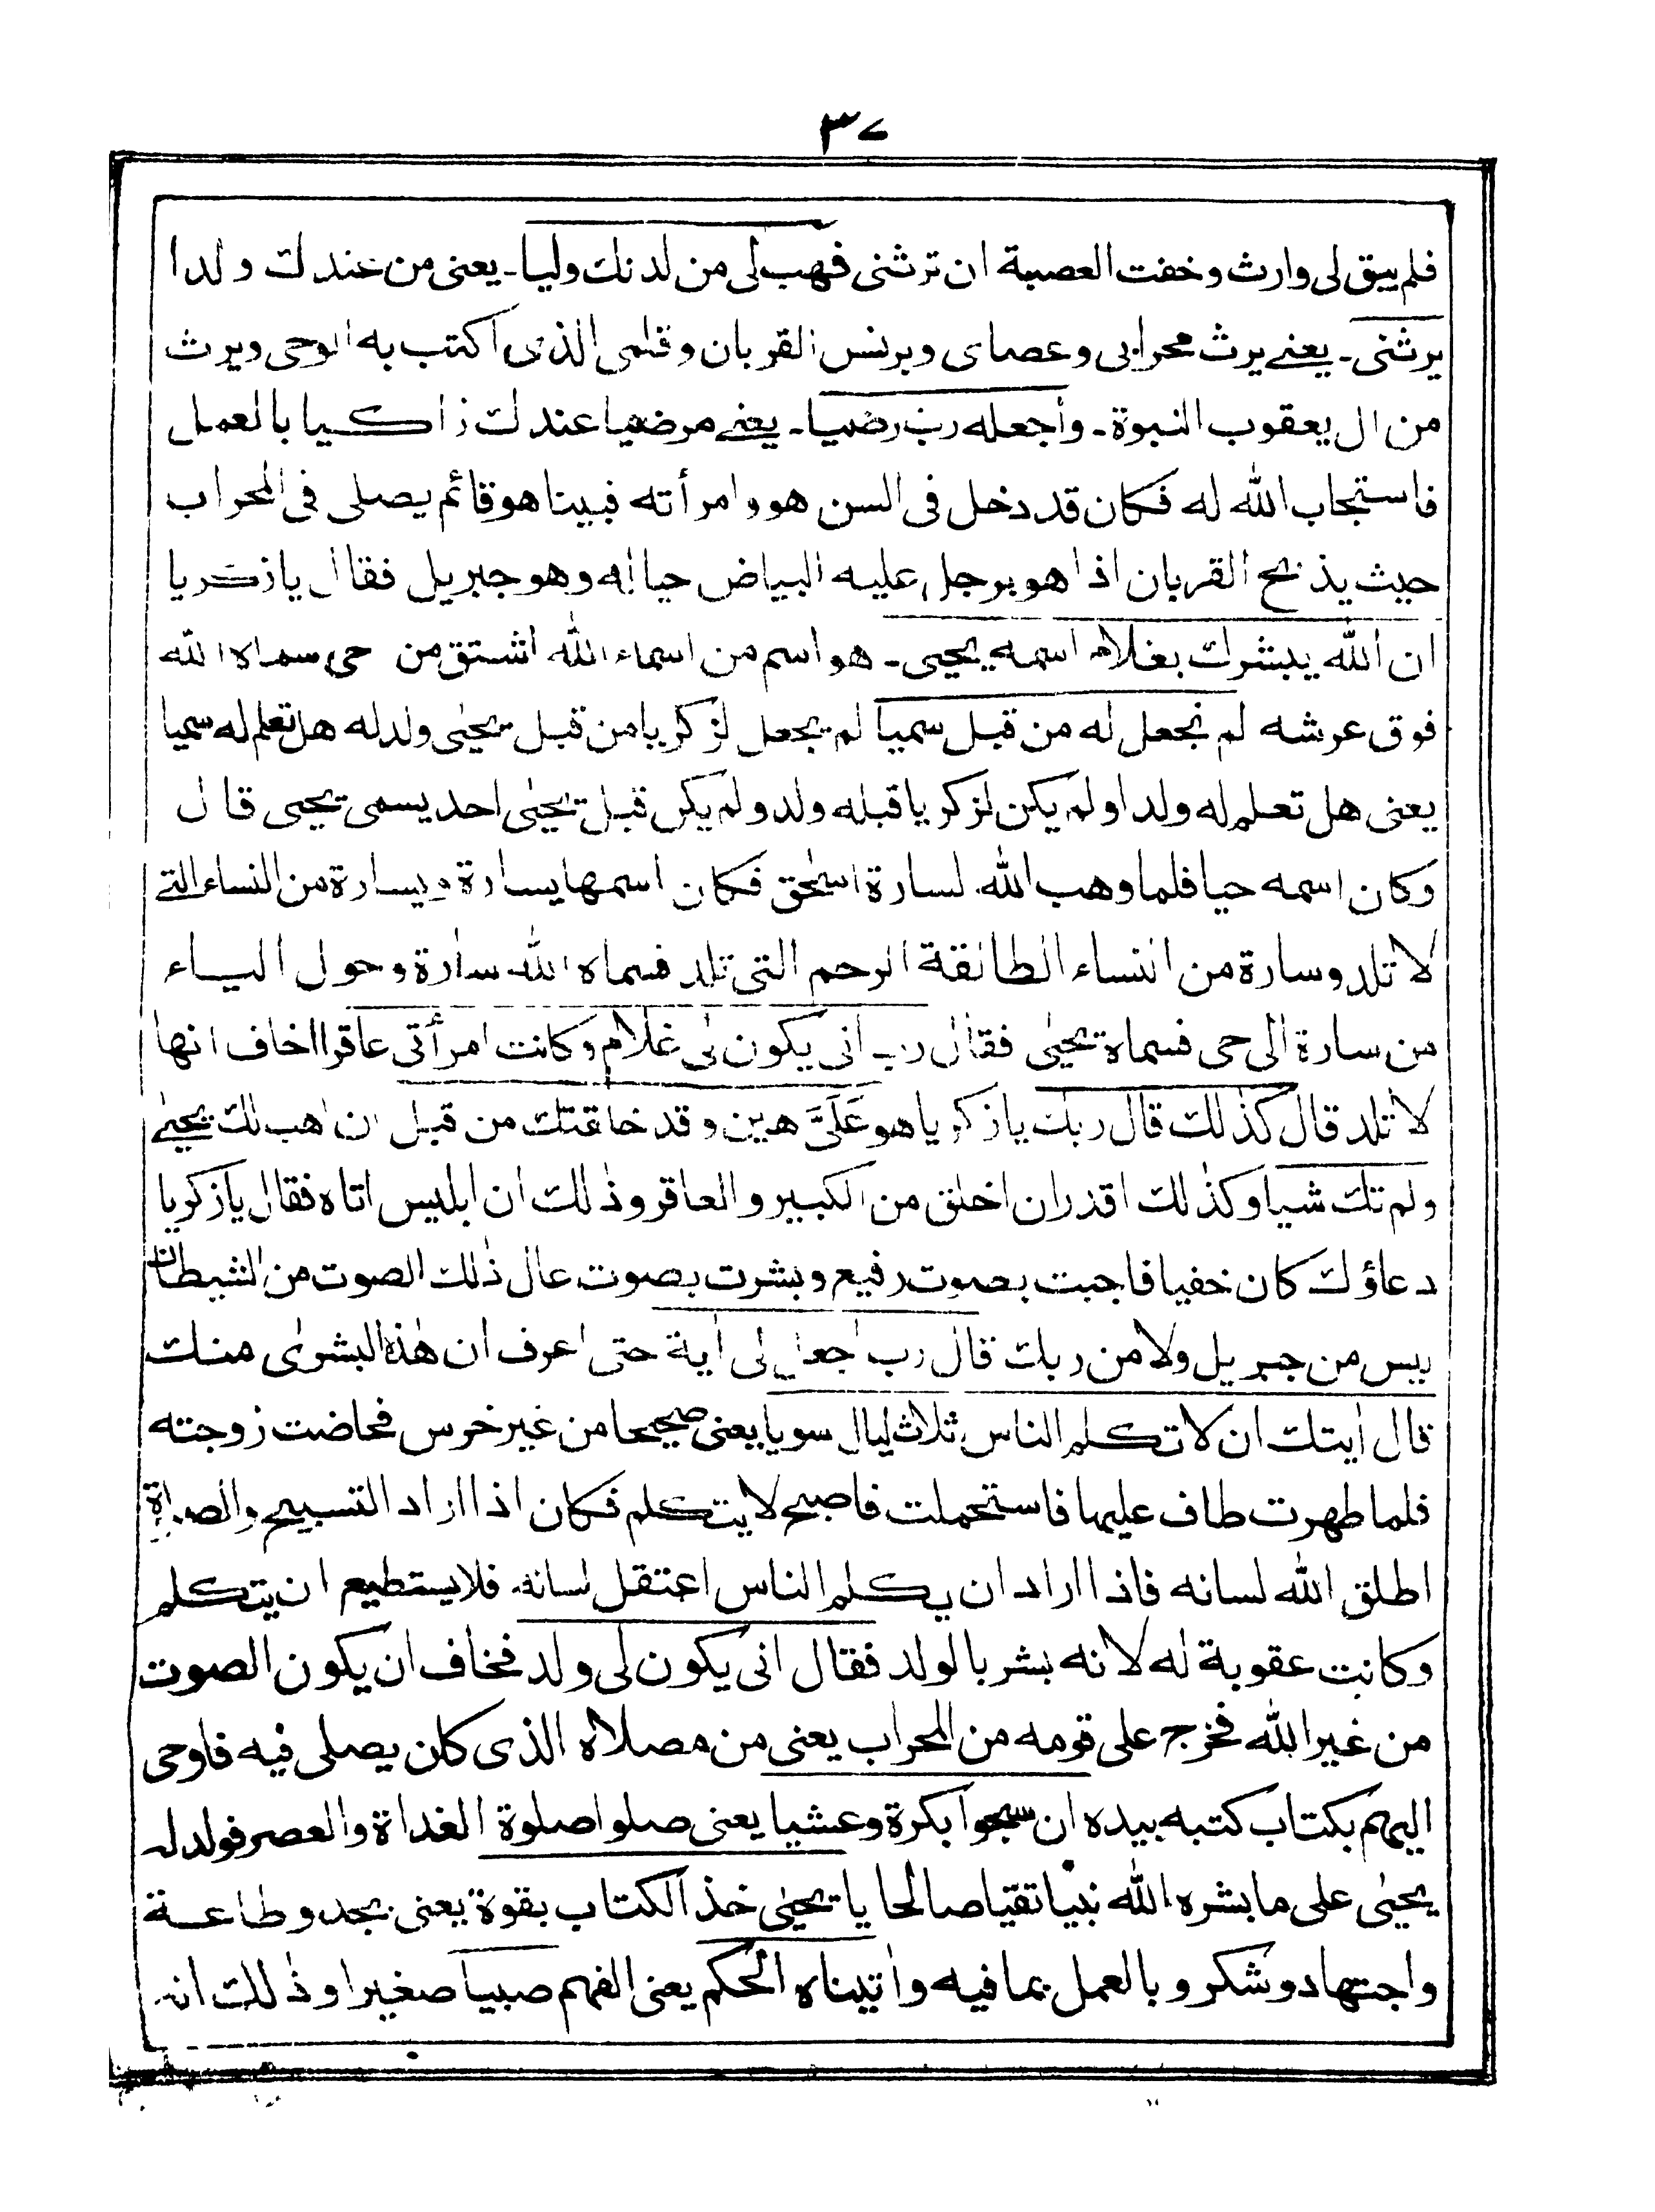 ٣٧
فلم يبق لى وارث وخفت العصبة ان ترثنى فهب لى من لدنك وليا۔ يعنى من عندك ولدا
يرثنى۔ يعنے يرث محرابى وعصاى وبرنس القربان وقلمى الذى اكتب به الوحى ويرث
من ال يعقوب النبوة۔ واجعله رب رضيا۔ يعنے مرضيا عندك زاكيا بالعمل
فاستجاب الله له فكان قد دخل فى السن هو وامرأته فبينا هو قائم يصلى فى المحراب
حيث يذبح القربان اذا هو برجل عليه البياض حياله وهو جبريل فقال يا زكريا
ان الله يبشرك بغلام اسمه يحيى۔ هو اسم من اسماء الله اشتق من حى سماه الله
فوق عرشه لم نجعل له من قبل سميا لم يجعل لزكريا من قبل يحيٰى ولد له هل تعلم له سميا
يعنى هل تعلم له ولدا ولم يكن لزكريا قبله ولد ولم يكن قبل يحيٰى احد يسمى يحيى قال
وكان اسمه حيا فلما وهب الله لسارة اسحٰق فكان اسمها يسارة ويسارة من النساء التے
لا تلد وسارة من النساء الطائقة الرحم التى تلد فسماه الله سارة وحول الياء
من سارة الى حى فسماه يحيٰى فقال رب انى يكون لى غلام وكانت امرأتى عاقرا اخاف انها
لا تلد قال كذلك قال ربك يا زكريا هو عَلَىَّ هين وقد خلقتك من قبل ان اهب لك يحيٰے
ولم تك شيا وكذلك اقدر ان اخلق من الكبير والعاقر وذلك ان ابليس اتاه فقال يا زكريا
دعاؤك كان خفيا فاجبت بصوت رفيع وبشرت بصوت عال ذٰلك الصوت من الشيطان
ليس من جبريل ولا من ربك قال رب اجعل لى اية حتى اعرف ان هٰذه البشرٰى منك
قال اٰيتك ان لا تكلم الناس ثلاث ليال سويا يعنى صحيحا من غير خرس فحاضت زوجته
فلما طهرت طاف عليها فاستحملت فاصبح لا يتكلم فكان اذا اراد التسبيح والصلوة
اطلق الله لسانه فاذا اراد ان يكلم الناس اعتقل لسانه فلا يستطيع ان يتكلم
وكانت عقوبة له لانه بشر بالولد فقال انى يكون لى ولد فخاف ان يكون الصوت
من غير الله فخرج على قومه من المحراب يعنى من مصلاه الذى كان يصلى فيه فاوحى
اليهم بكتاب كتبه بيده ان سبحوا بكرة وعشيا يعنى صلوا صلوة الغداة والعصر فولد له
يحيٰى على ما بشره الله نبيا تقيا صالحا يا يحيٰى خذ الكتاب بقوة يعنى بجد وطاعة
واجتهاد وشكر وبالعمل بما فيه واٰتيناه الحكم يعنى الفهم صبيا صغيرا وذٰلك انه